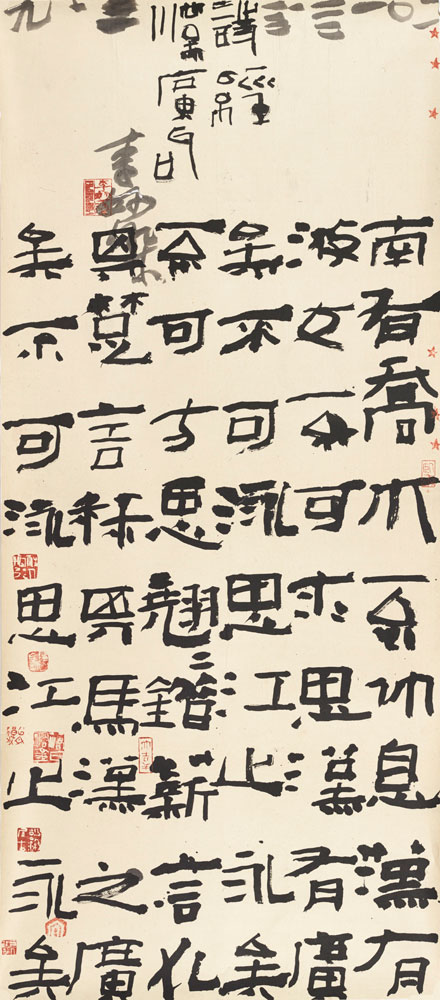 南有喬木不休息漢有
游女不可求思漢有廣
矣不可泳思江止永矣
不可方思翹=錯薪言刈
其楚言秣其馬漢之廣
矣不可泳思江止永矣
詩經
漢廣句